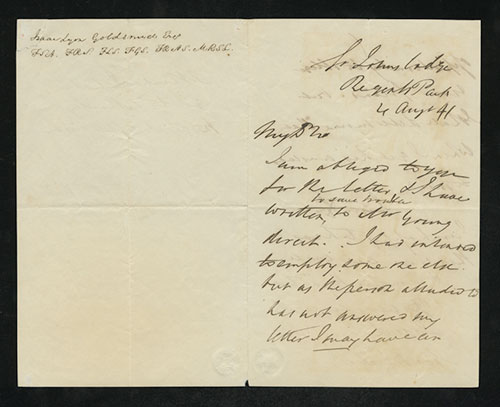 Isaac Lyon Goldsmid Esqr
F.S.A. F.R.S. F.L.S. F.G.S. F.R.A.S. M.R.S.L.
St Johns Lodge
Regents Park
4 Augt 41
My Dr Sir
I am obliged to you
for the letter, & I have
to save trouble
written, to Mr Young
direct. I had intended
to employ some one else
but as the person alluded to
has not answered my
letter I may have an